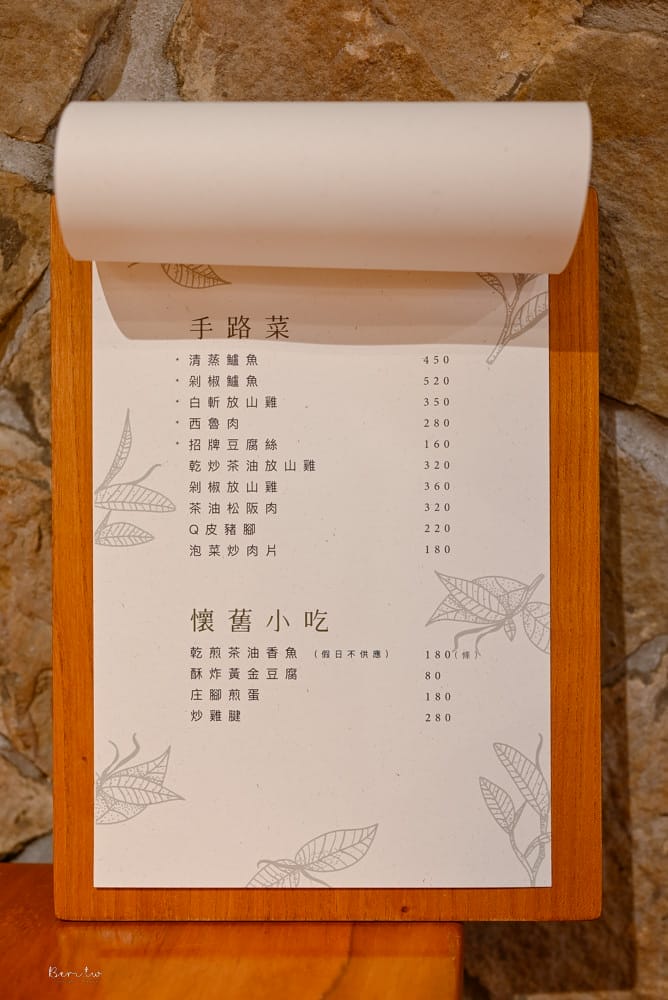 手路菜
* 清蒸鱸魚 450
* 剁椒鱸魚 520
* 白斬放山雞 350
* 西魯肉 280
* 招牌豆腐絲 160
乾炒茶油放山雞 320
剁椒放山雞 360
茶油松阪肉 320
Q皮豬腳 220
泡菜炒肉片 180
懷舊小吃
乾煎茶油香魚 (假日不供應) 180(條)
酥炸黃金豆腐 80
庄腳煎蛋 180
炒雞腱 280
Beri.tw